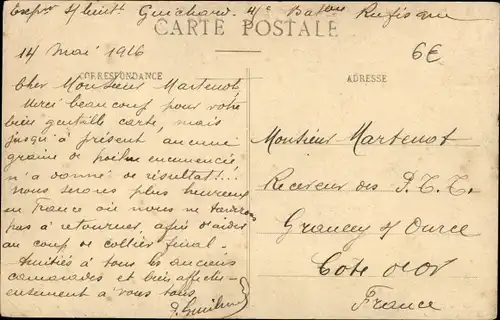 Exp. S/lieut. Guichard. 4e Baton Rufisque
CARTE POSTALE
6€
14 Mai 1916
CORRESPONDANCE
ADRESSE
Cher Monsieur Martenot,
Merci beaucoup pour votre
bien gentille carte, mais
jusqu'à présent aucune
graine de poilu
n'a donné de résultat!!..
Nous serons plus heureux
en France où nous ne tarderons
pas à retourner, afin d'aider
au coup de collier final.
Amitiés à tous les anciens
camarades et bien affectu-
eusement à vous tous
Monsieur Martenot
Receveur des P.T.T.
Grancey s/ Ource
Côte d'Or
France